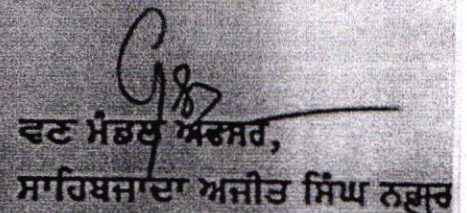 ਵਣ ਮੰਡਲ ਅਫਸਰ,
ਸਾਹਿਬਜਾਦਾ ਅਜੀਤ ਸਿੰਘ ਨਗਰ